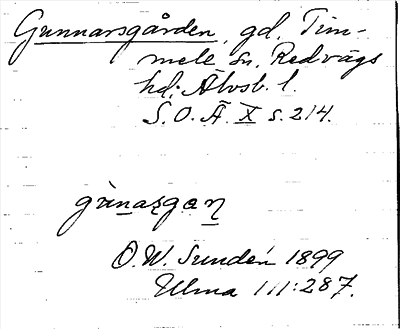 Gunnarsgården, gd, Tim-
mele sn, Redvägs
hd; Älvsb. l.
S.O.Ä. X s. 214.
gùnaꞅgaꞃ
O.W. Sundén 1899
Ulma 111:287.